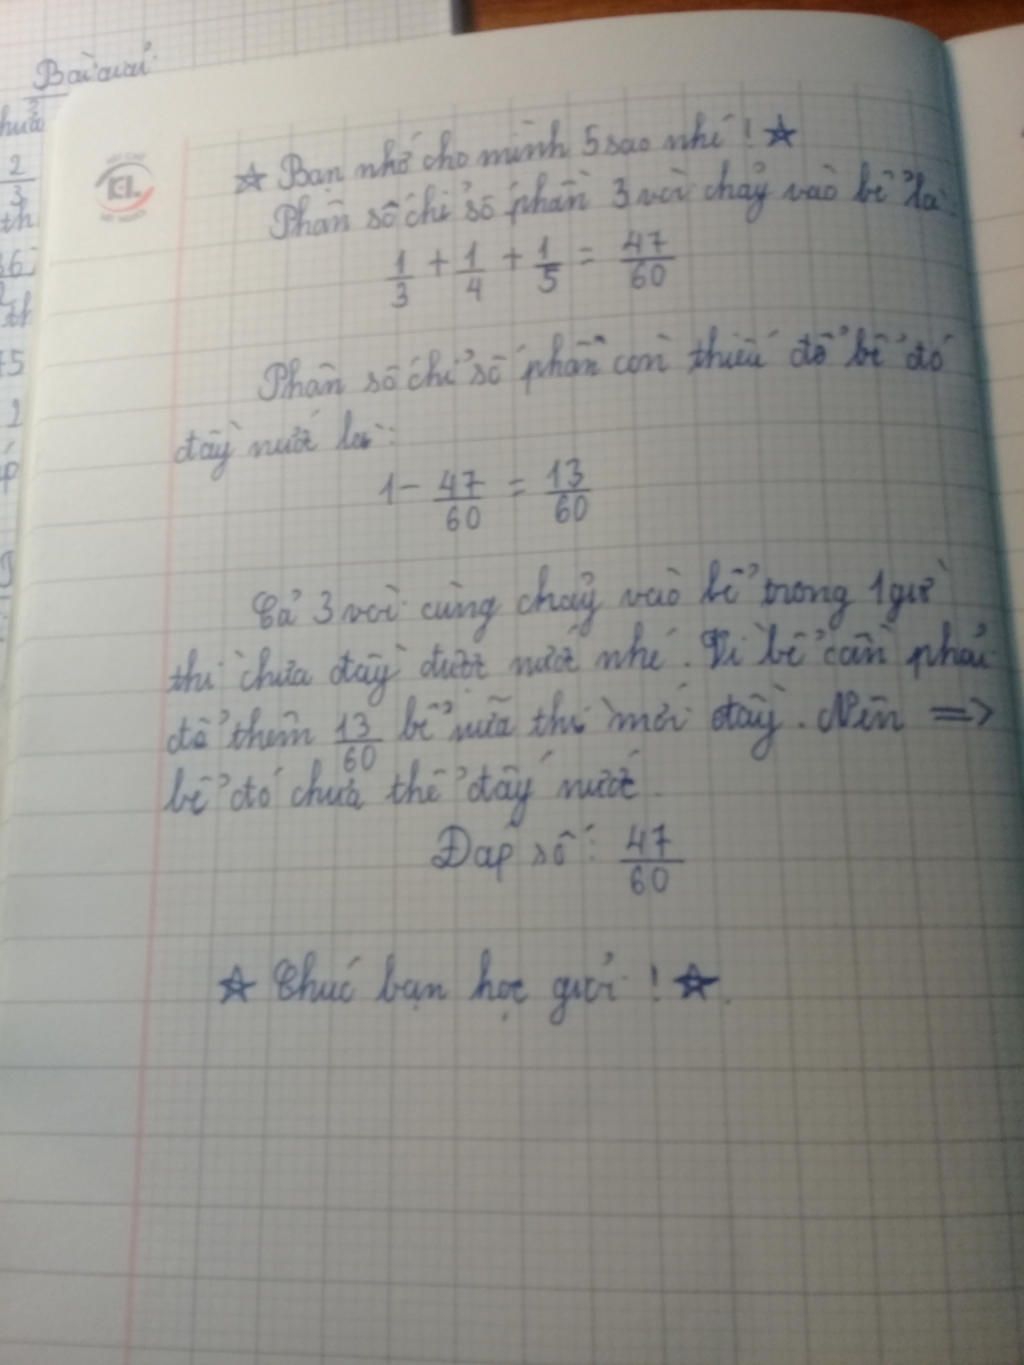 Bài giải:
2
3
th
☆ Bạn nhớ cho mình 5 sao nhé! ☆
Phân số chỉ số phần 3 vòi chảy vào bể là:
1/3 + 1/4 + 1/5 = 47/60
Phân số chỉ số phần còn thiếu để bể đó
đầy nước là:
1 - 47/60 = 13/60
Cả 3 vòi cùng chảy vào bể trong 1 giờ
thì chưa đầy được nước nhé. Vì bể cần phải
đổ thêm 13/60 bể nữa thì mới đầy. Nên =>
bể đó chưa thể đầy nước.
Đáp số: 47/60
☆ Chúc bạn học giỏi! ☆.